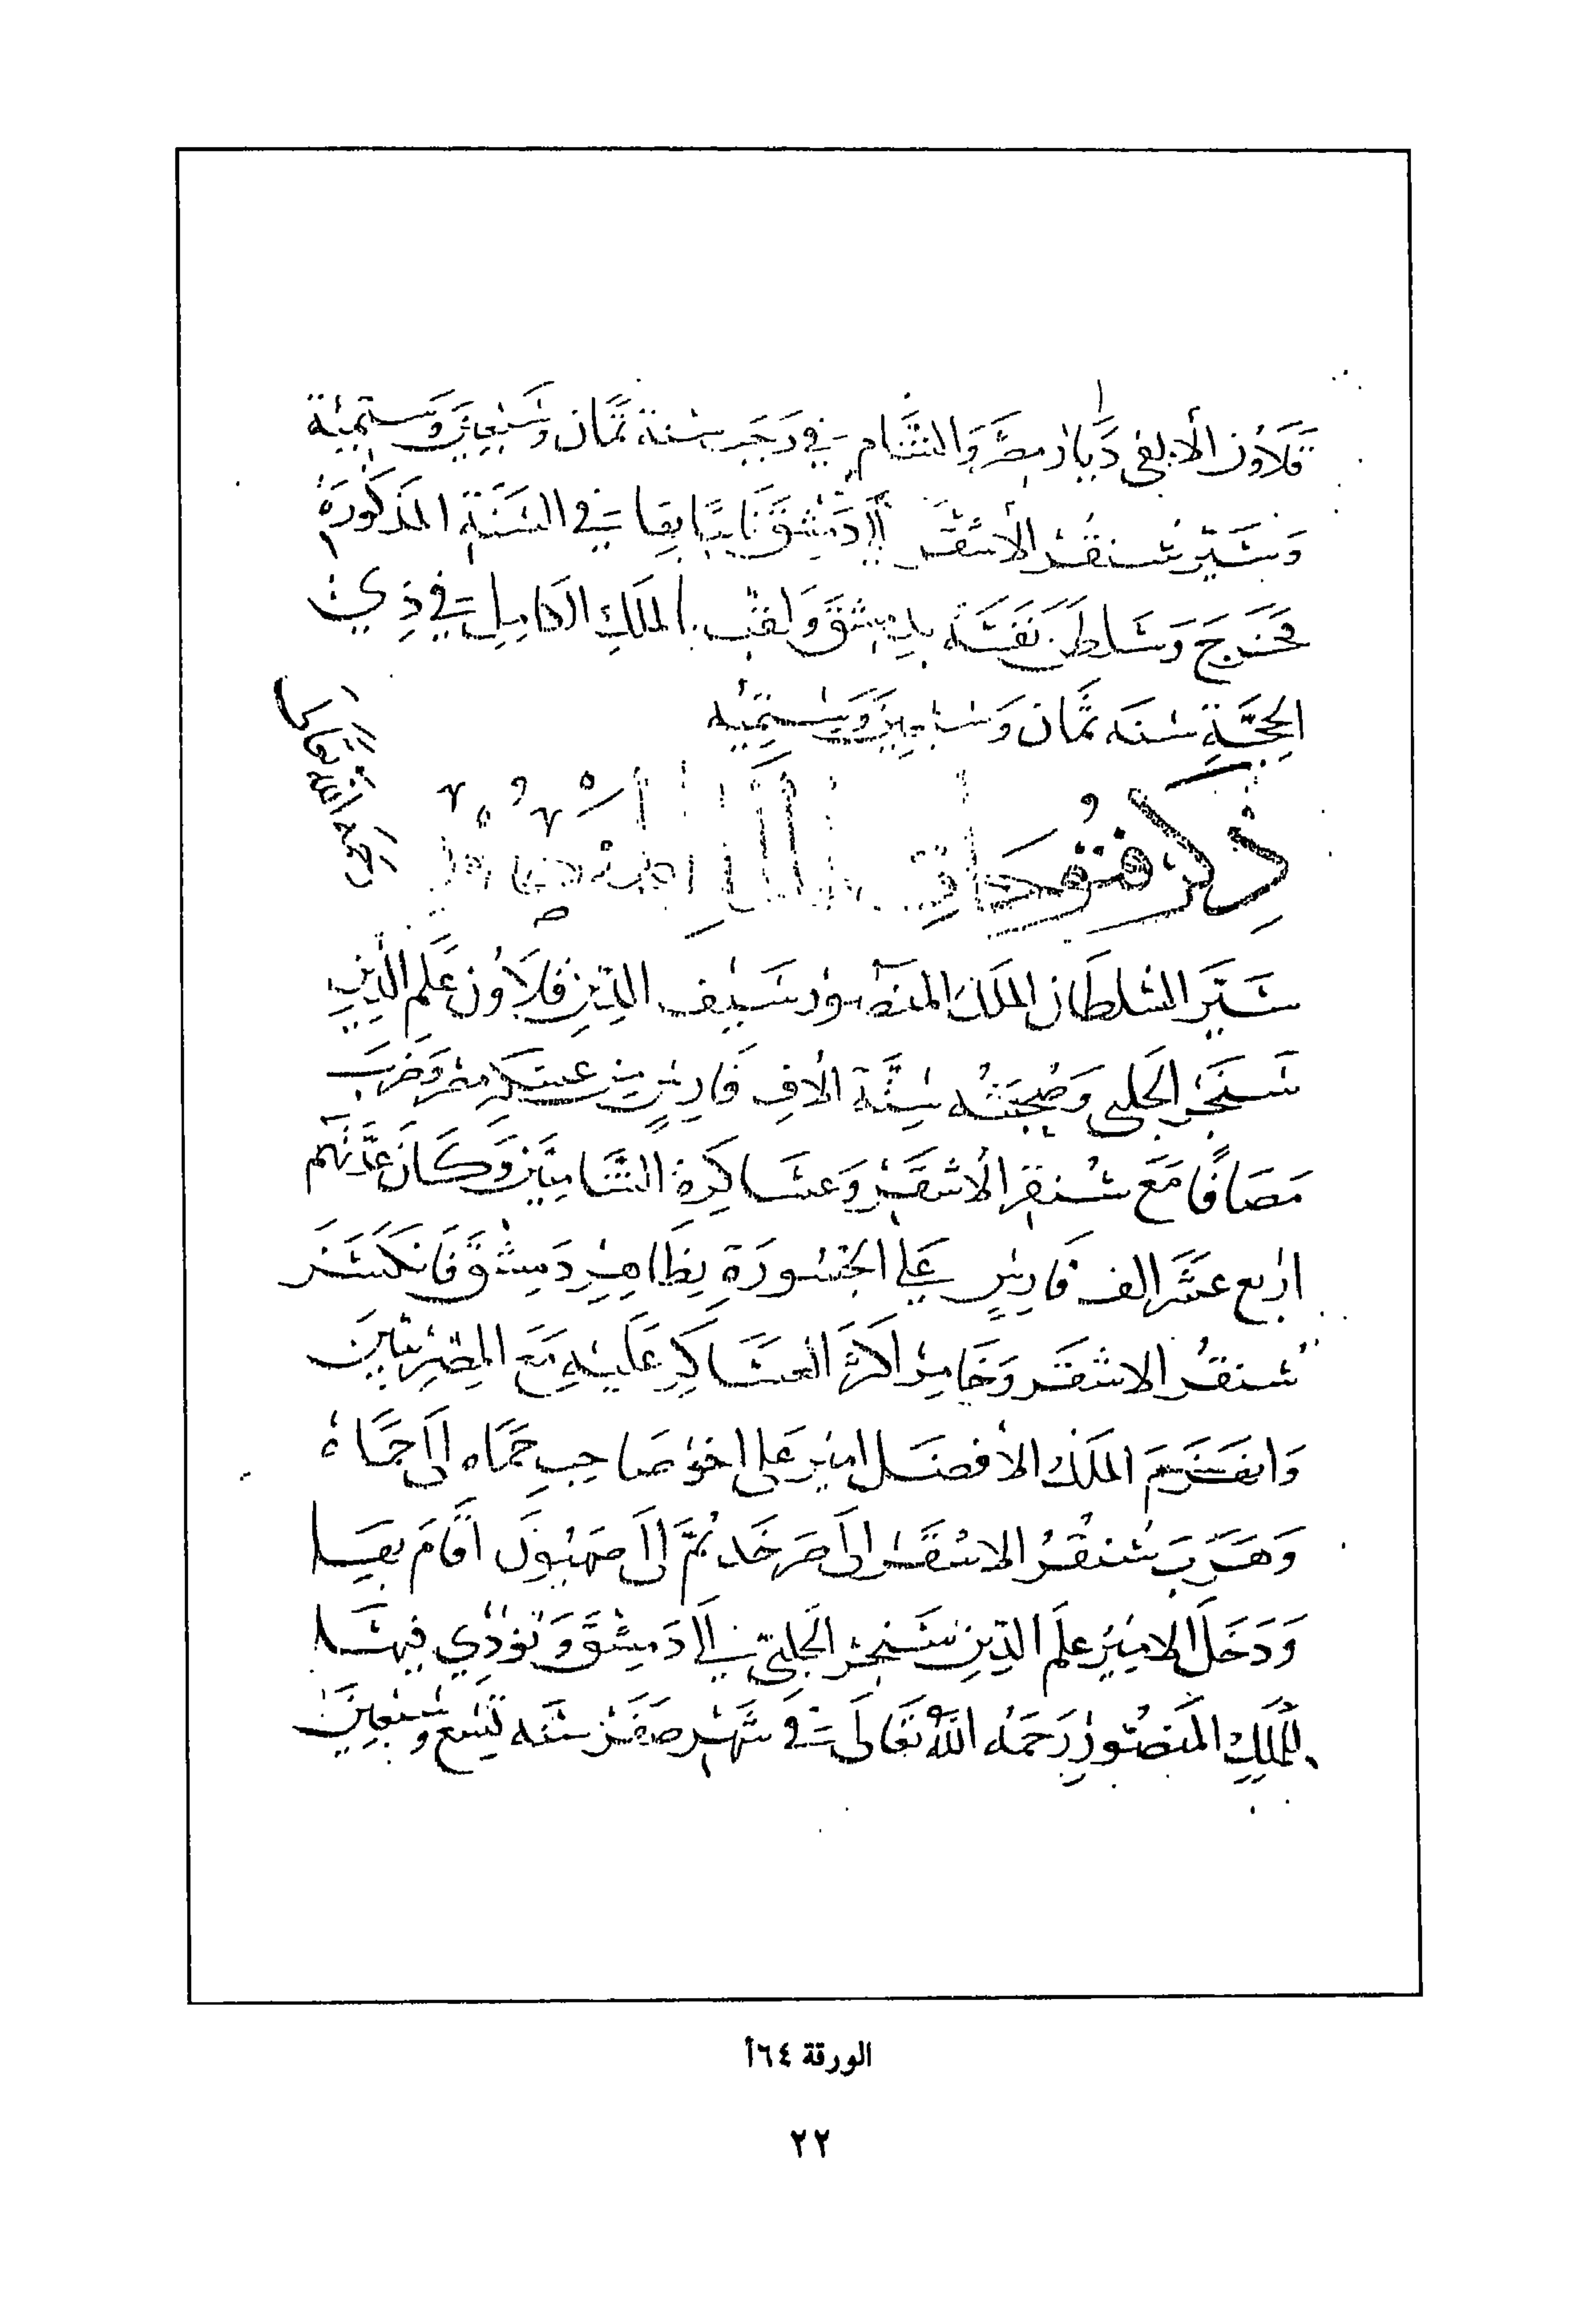 قلاوُن الألفي ديار مصر والشام في رجب سنة ثمان وسبعين وستمئة
وسَيّر سُنقُر الأشقر إلى دمشق نايبًا بها في السنة المذكورة
فخرج وسلطن نفسه بدمشق ولقب بالملك الكامل في ذي
الحجّة سنه ثمان وسبعين وستمئه
ذكر فتوحات
رحمه الله تعالى
سَيَّر السُلطان الملك المنصور سيف الدين قلاوُن علم الدين
سنجر الحلبي وصُحبته ستّة آلاف فارسٍ من عسكر مصر وضرب
مصافًا مع سُنقر الأشقر وعساكره الشاميين وكان عدّتهم
اربع عشر الف فارسٍ على الجسورة بظاهر دمشق فانكسر
سُنقُر الاشقر وخامر اكثر العساكر عليه مع المصريين
وانهزم الملك الأفضل امير علي اخو صاحب حماه إلى حماة
وهرب سُنقُر الاشقر إلى صرخد ثمّ إلى صهيون اقام بها
ودخل الامير علم الدين سنجر الحلبيّ إلى دمشق ونُودي فيها
للملك المنصور رحمه الله تعالى في شهر صفر سنه تسع وسبعين
الورقة ٦٤أ
٢٢